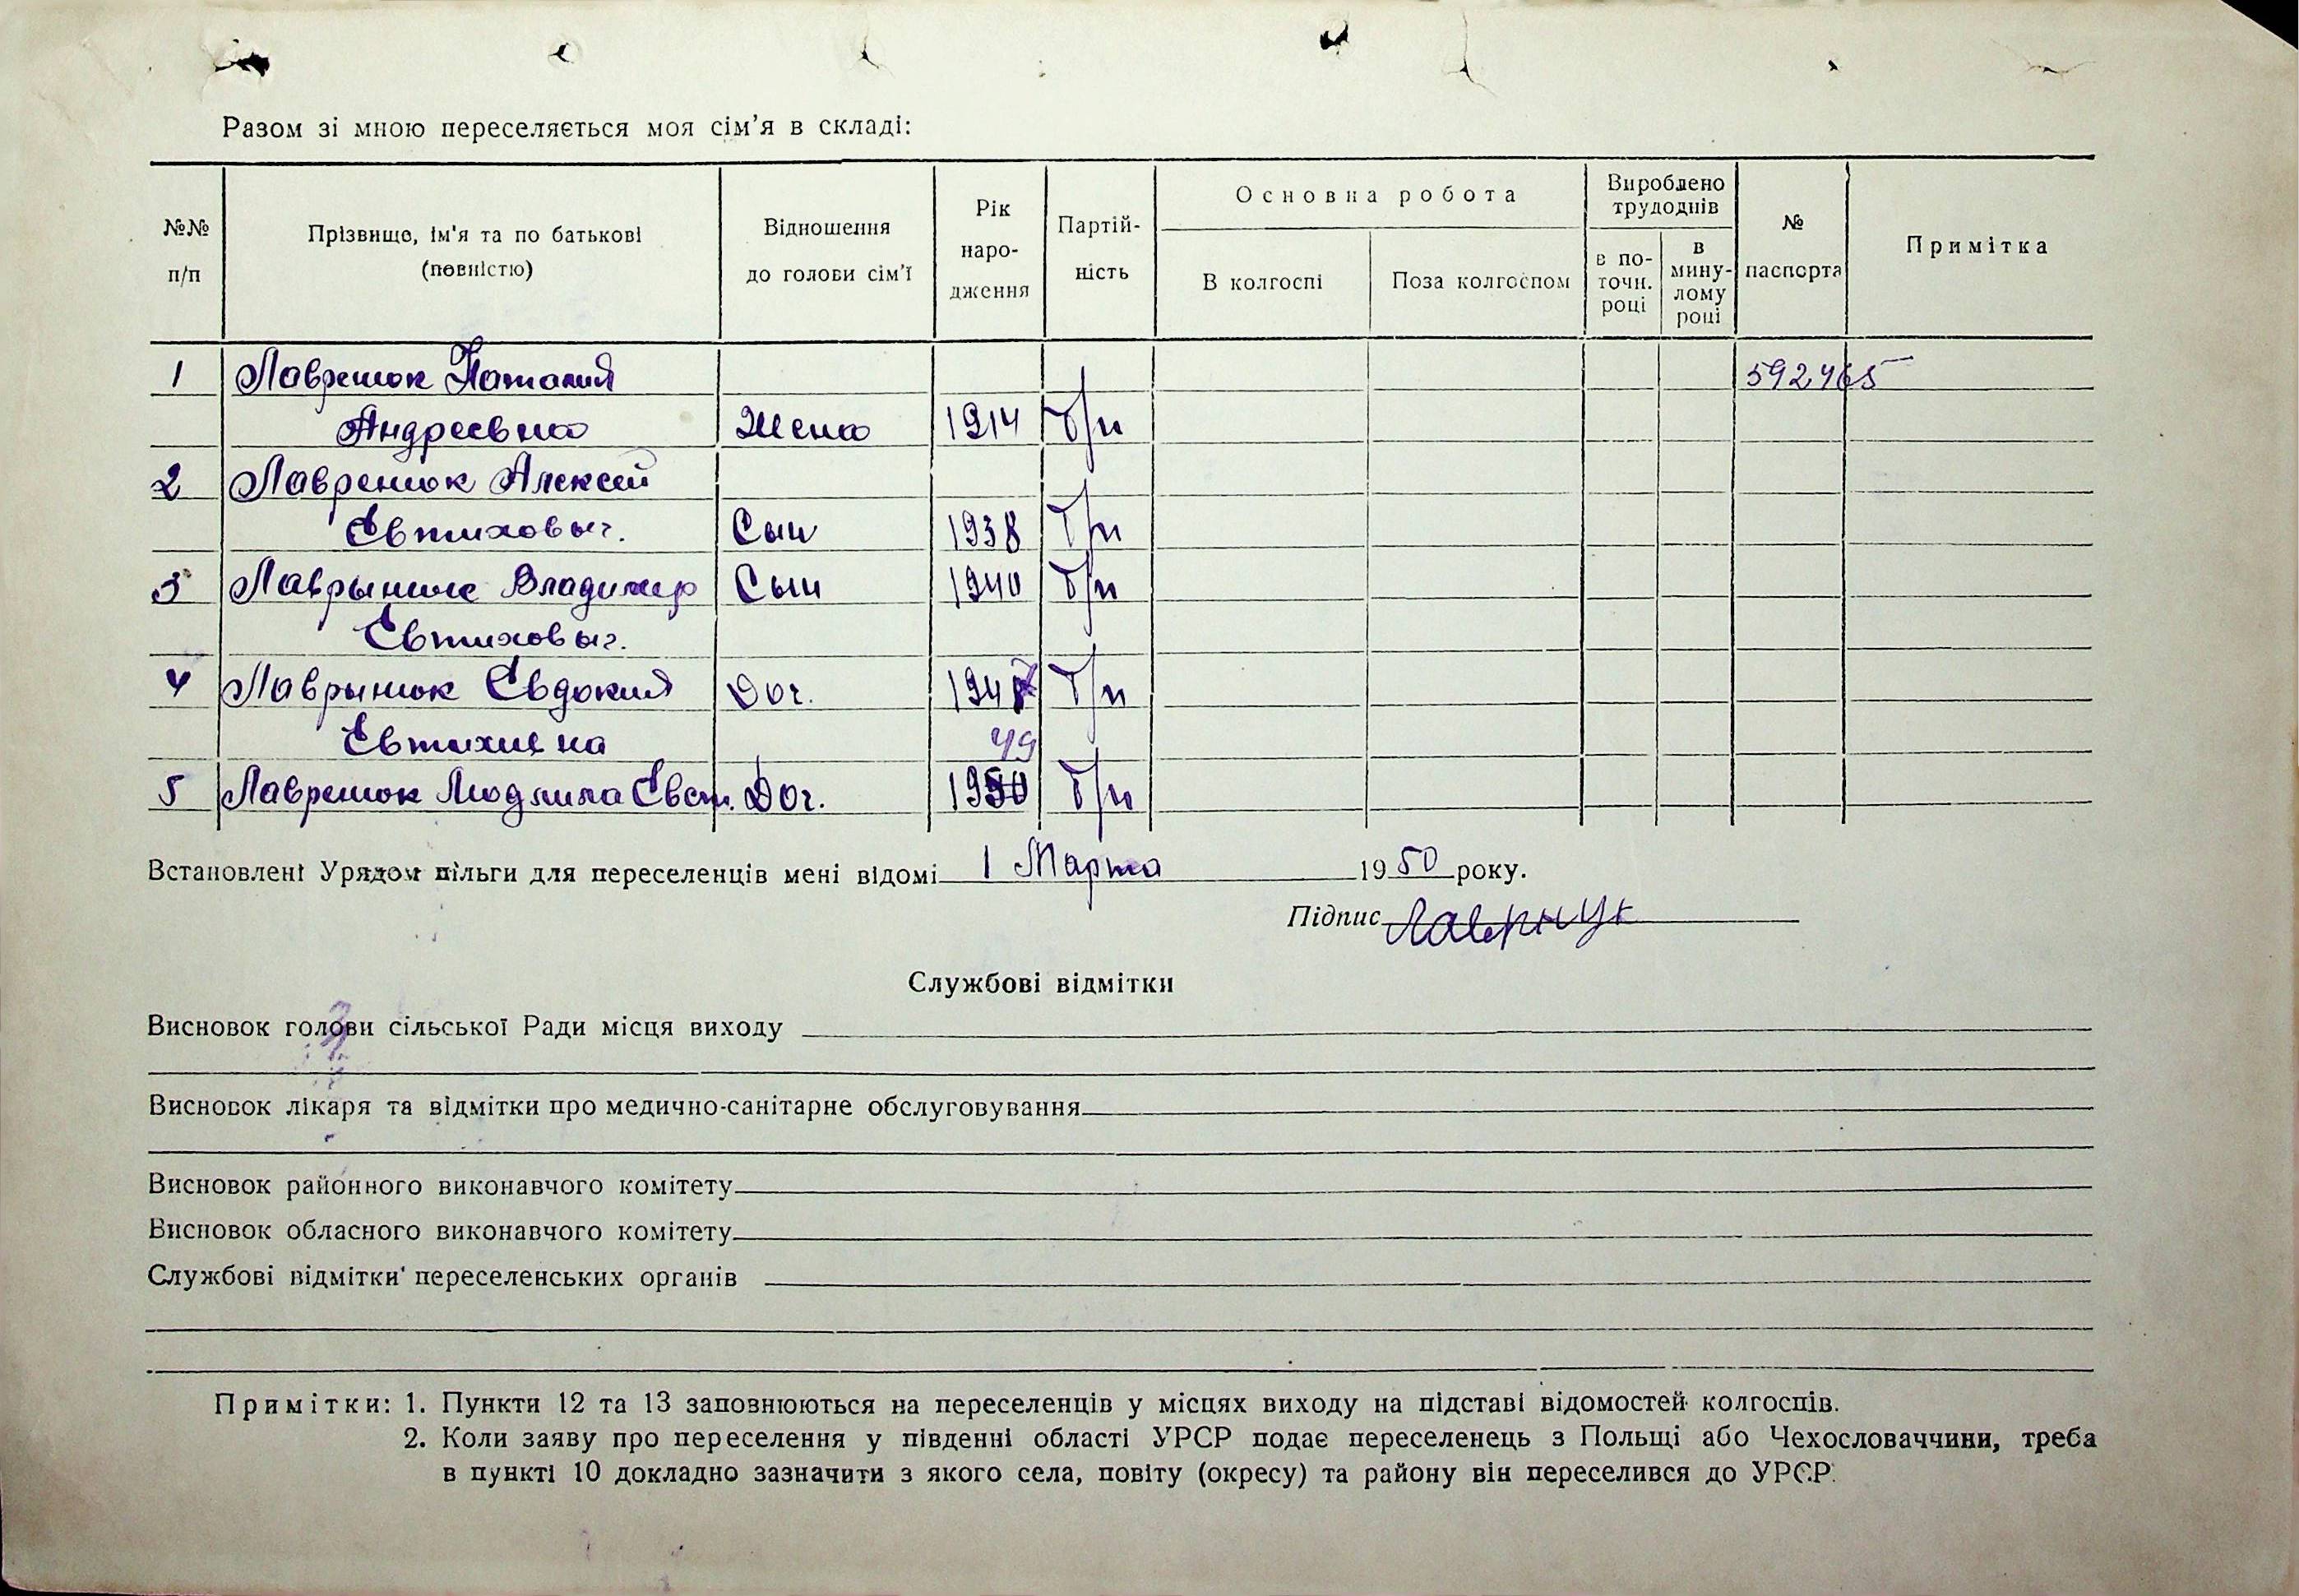 Разом зі мною переселяється моя сім'я в складі:
№№ п/п
Прізвище, ім'я та по батькові (повністю)
Відношення до голови сім'ї
Рік народження
Партійність
Основна робота
В колгоспі
Поза колгоспом
Вироблено трудоднів
в поточн. році
в минулому році
№ паспорта
Примітка
1 Лавренюк Наталия 592465
Андреевна Жена 1914 б/п
2 Лавренюк Алексей
Евтихович. Сын 1938 б/п
3 Лаврынюк Владимир Сын 1940 б/п
Евтиховыч.
4 Лаврынюк Евдокия Доч. 1947 б/п
Евтихиевна
49
5 Лавренюк Людмила Евт. Доч. 1950 б/п
Встановлені Урядом пільги для переселенців мені відомі 1 Марта 1950 року.
Підпис Лавернук
Службові відмітки
Висновок голови сільської Ради місця виходу
Висновок лікаря та відмітки про медично-санітарне обслуговування
Висновок районного виконавчого комітету
Висновок обласного виконавчого комітету
Службові відмітки переселенських органів
Примітки: 1. Пункти 12 та 13 заповнюються на переселенців у місцях виходу на підставі відомостей колгоспів.
2. Коли заяву про переселення у південні області УРСР подає переселенець з Польщі або Чехословаччини, треба
в пункті 10 докладно зазначити з якого села, повіту (окресу) та району він переселився до УРСР.